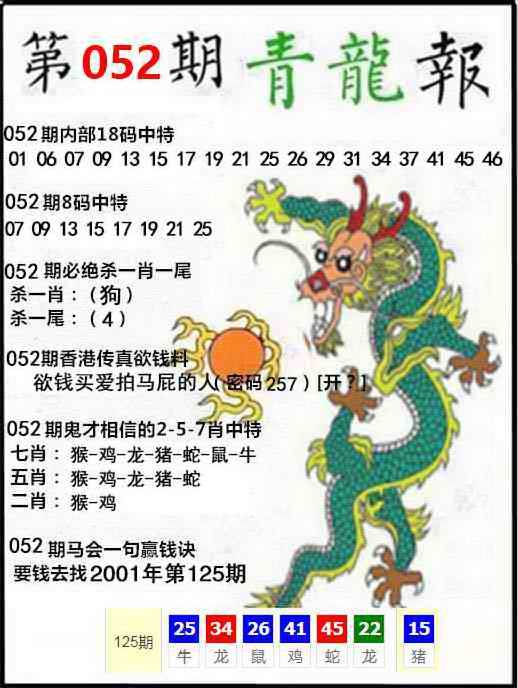 第052期青龍報
052期内部18码中特
01 06 07 09 13 15 17 19 21 25 26 29 31 34 37 41 45 46
052期8码中特
07 09 13 15 17 19 21 25
052期必绝杀一肖一尾
杀一肖：（狗）
杀一尾：（4）
052期香港传真欲钱料
欲钱买爱拍马屁的人(密码257)[开？]
052期鬼才相信的2-5-7肖中特
七肖：猴-鸡-龙-猪-蛇-鼠-牛
五肖：猴-鸡-龙-猪-蛇
二肖：猴-鸡
052期马会一句赢钱诀
要钱去找2001年第125期
125期 25 34 26 41 45 22 15
牛 龙 鼠 鸡 蛇 龙 猪